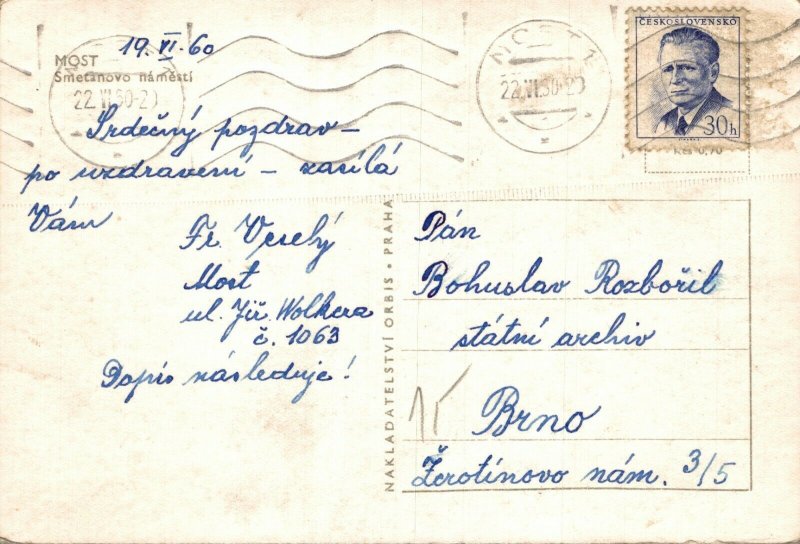 19. VI. 60
MOST
Smetanovo náměstí
22.VI.60-20
MOST 1
22.VI.60-20
ČESKOSLOVENSKO
30h
Kčs 0,70
Srdečný pozdrav –
po uzdravení – zasílá
Vám
Fr. Veselý
Most
ul. Jiř. Wolkera
č. 1063
Dopis následuje!
NAKLADATELSTVÍ ORBIS • PRAHA
Pán
Bohuslav Rozbořil
státní archiv
Brno
Žerotínovo nám. 3/5